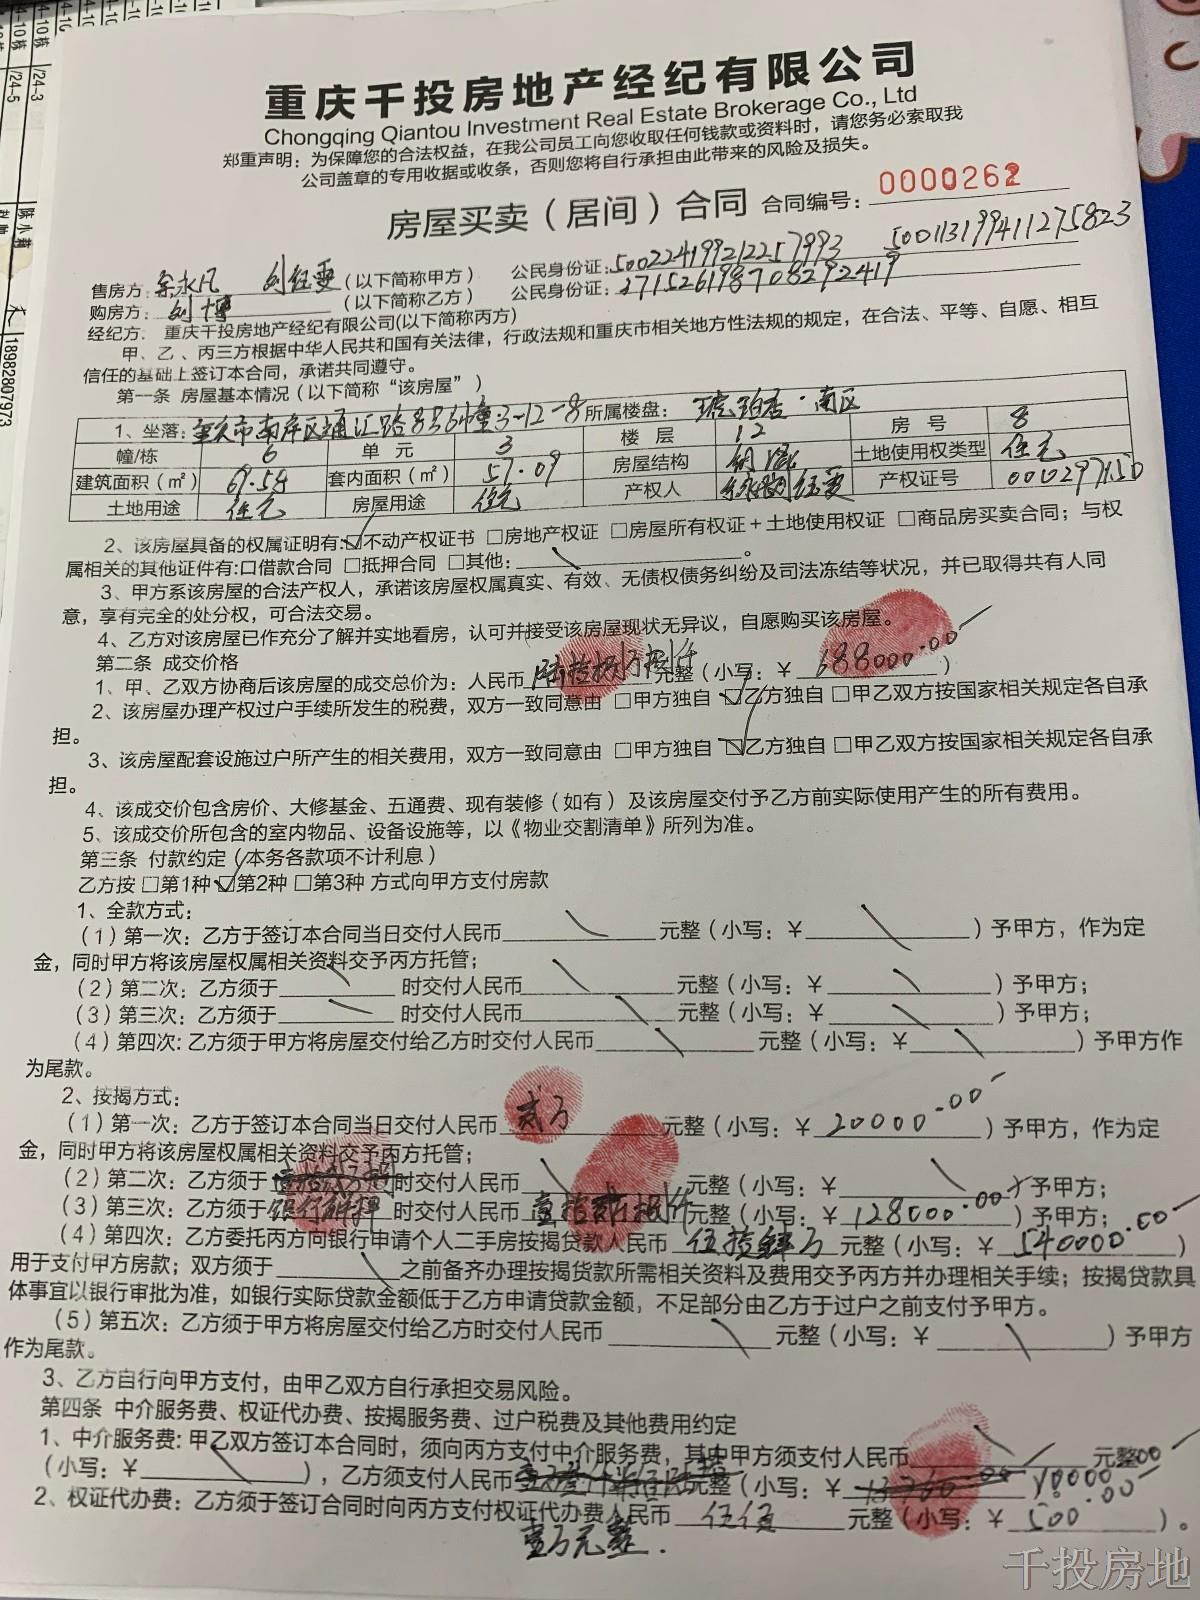 重庆千投房地产经纪有限公司
Chongqing Qiantou Investment Real Estate Brokerage Co., Ltd
郑重声明：为保障您的合法权益，在我公司员工向您收取任何钱款或资料时，请您务必索取我
公司盖章的专用收据或收条，否则您将自行承担由此带来的风险及损失。
房屋买卖（居间）合同 合同编号：0000262
售房方：余永凡 刘经雯（以下简称甲方） 公民身份证：500224199212257993 500113199411275823
购房方：刘博（以下简称乙方） 公民身份证：371526198708292419
经纪方：重庆千投房地产经纪有限公司(以下简称丙方)
甲、乙、丙三方根据中华人民共和国有关法律，行政法规和重庆市相关地方性法规的规定，在合法、平等、自愿、相互
信任的基础上签订本合同，承诺共同遵守。
第一条 房屋基本情况（以下简称“该房屋”）
1、坐落：重庆市南岸区通汇路8号6幢3-12-8 所属楼盘：琥珀居·南区
幢/栋 6 单元 3 楼层 12 房号 8
建筑面积（㎡） 69.54 套内面积（㎡） 57.09 房屋结构 钢混 土地使用权类型 住宅
土地用途 住宅 房屋用途 住宅 产权人 产权证号 000297150
2、该房屋具备的权属证明有:☑不动产权证书 □房地产权证 □房屋所有权证＋土地使用权证 □商品房买卖合同；与权
属相关的其他证件有:口借款合同 □抵押合同 □其他: 。
3、甲方系该房屋的合法产权人，承诺该房屋权属真实、有效、无债权债务纠纷及司法冻结等状况，并已取得共有人同
意，享有完全的处分权，可合法交易。
4、乙方对该房屋已作充分了解并实地看房，认可并接受该房屋现状无异议，自愿购买该房屋。
第二条 成交价格
1、甲、乙双方协商后该房屋的成交总价为：人民币陆拾捌万捌仟元整（小写：￥688000.00）
2、该房屋办理产权过户手续所发生的税费，双方一致同意由 □甲方独自 ☑乙方独自 □甲乙双方按国家相关规定各自承
担。
3、该房屋配套设施过户所产生的相关费用，双方一致同意由 □甲方独自 ☑乙方独自 □甲乙双方按国家相关规定各自承
担。
4、该成交价包含房价、大修基金、五通费、现有装修（如有）及该房屋交付予乙方前实际使用产生的所有费用。
5、该成交价所包含的室内物品、设备设施等，以《物业交割清单》所列为准。
第三条 付款约定（本务各款项不计利息）
乙方按 □第1种 ☑第2种 □第3种 方式向甲方支付房款
1、全款方式：
（1）第一次：乙方于签订本合同当日交付人民币 元整（小写：￥ ）予甲方，作为定
金，同时甲方将该房屋权属相关资料交予丙方托管；
（2）第二次：乙方须于 时交付人民币 元整（小写：￥ ）予甲方；
（3）第三次：乙方须于 时交付人民币 元整（小写：￥ ）予甲方；
（4）第四次:乙方须于甲方将房屋交付给乙方时交付人民币 元整（小写：￥ ）予甲方作
为尾款。
2、按揭方式：
（1）第一次：乙方于签订本合同当日交付人民币 贰万 元整（小写：￥20000.00）予甲方，作为定
金，同时甲方将该房屋权属相关资料交予丙方托管；
（2）第二次：乙方须于 时交付人民币 元整（小写：￥ ）予甲方；
（3）第三次：乙方须于银行解押时交付人民币壹拾贰万捌仟元整（小写：￥128000.00）予甲方；
（4）第四次：乙方委托丙方向银行申请个人二手房按揭贷款人民币 伍拾肆万 元整（小写：￥540000.00）
用于支付甲方房款；双方须于 之前备齐办理按揭货款所需相关资料及费用交予丙方并办理相关手续；按揭贷款具
体事宜以银行审批为准，如银行实际贷款金额低于乙方申请贷款金额，不足部分由乙方于过户之前支付予甲方。
（5）第五次：乙方须于甲方将房屋交付给乙方时交付人民币 元整（小写：￥ ）予甲方
作为尾款。
3、乙方自行向甲方支付，由甲乙双方自行承担交易风险。
第四条 中介服务费、权证代办费、按揭服务费、过户税费及其他费用约定
1、中介服务费：甲乙双方签订本合同时，须向丙方支付中介服务费，其中甲方须支付人民币 元整
（小写：￥ ），乙方须支付人民币 元整（小写：￥13760.00 10000.00
2、权证代办费：乙方须于签订合同时向丙方支付权证代办费人民币 伍佰 元整（小写：￥500.00）。
壹万元整.
千投房地
18982807973
/24-3
/24-5